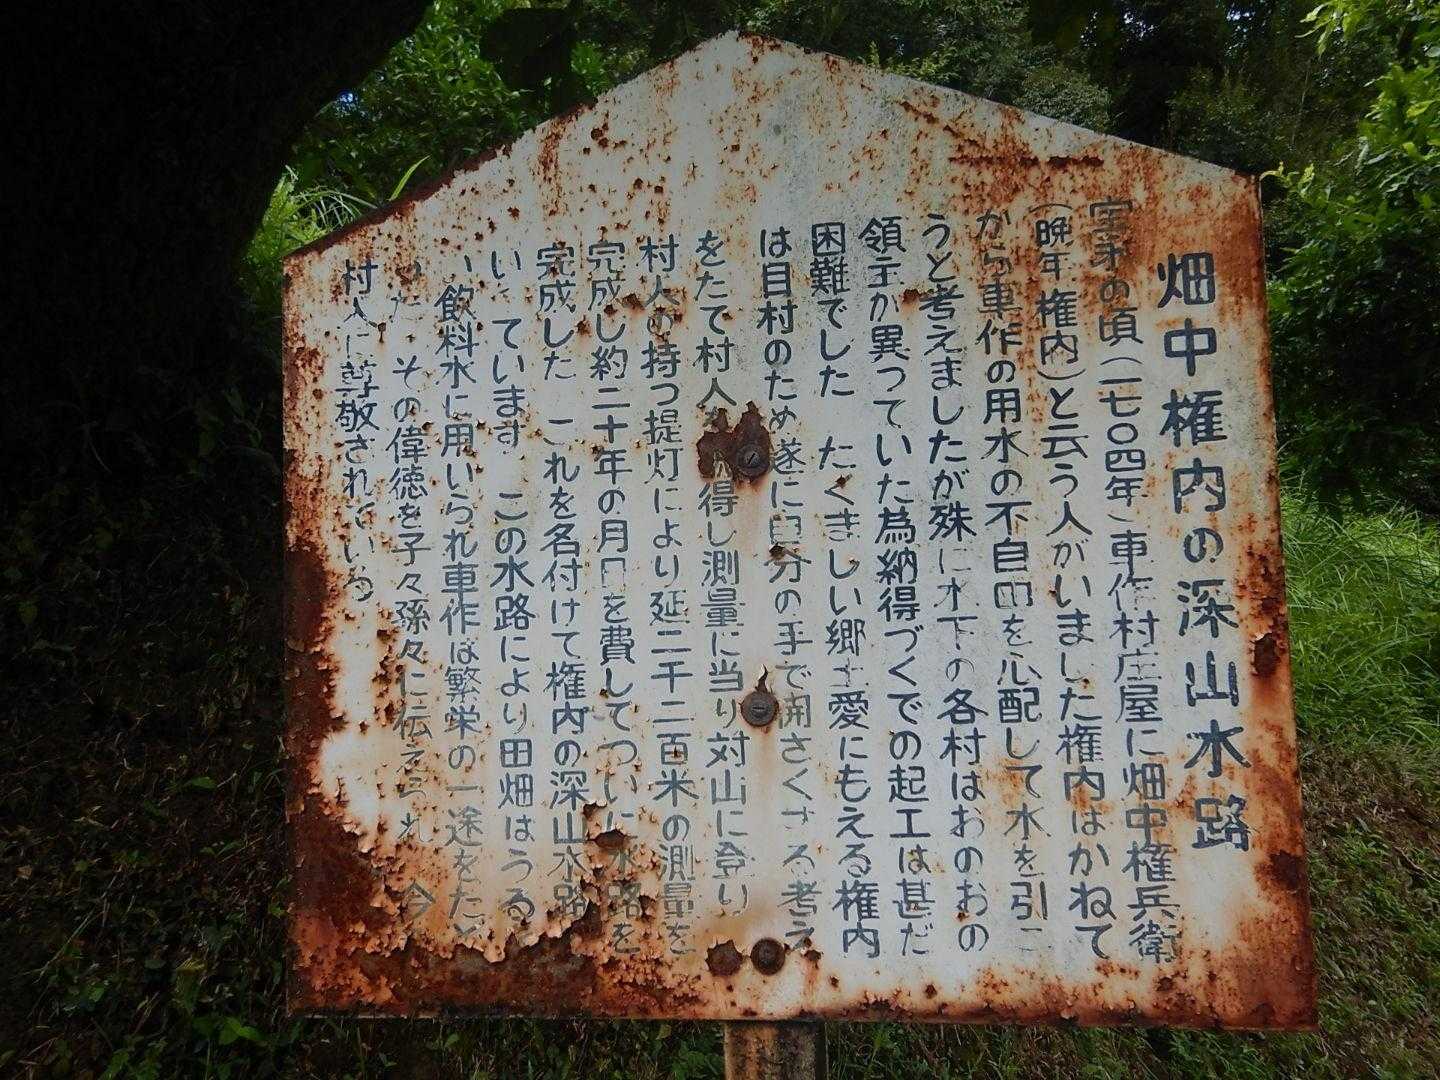 畑中権内の深山水路
宝永の頃(一七〇四年)車作村庄屋に畑中権兵衛
(晩年権内)と云う人がいました権内はかねて
から車作の用水の不自由を心配して水を引こ
うと考えましたが殊に水下の各村はおのおの
領主が異っていた為納得づくでの起工は甚だ
困難でした たくましい郷土愛にもえる権内
は自村のため遂に自分の手で開さくする考え
をたて村人 得し測量に当り対山に登り
村人の持つ提灯により延二千二百米の測量を
完成し約二十年の月日を費してついに水路を
完成した これを名付けて権内の深山水路
います この水路により田畑はうる
い飲料水に用いられ車作は繁栄の一途をたど
った その偉徳を子々孫々に伝えられ 今
村人に尊敬されている